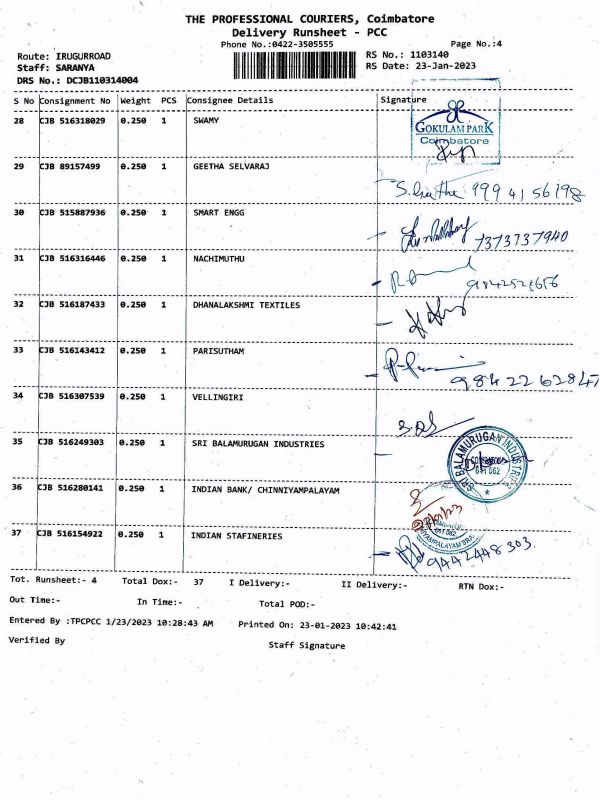 THE PROFESSIONAL COURIERS, Coimbatore
Delivery Runsheet - PCC
Phone No.:0422-3505555 Page No.:4
Route: IRUGURROAD RS No.: 1103140
Staff: SARANYA RS Date: 23-Jan-2023
DRS No.: DCJB110314004
S No Consignment No Weight PCS Consignee Details Signature
28 CJB 516318029 0.250 1 SWAMY
GOKULAM PARK
Coimbatore
29 CJB 89157499 0.250 1 GEETHA SELVARAJ
999 41 56198
30 CJB 515887936 0.250 1 SMART ENGG
7373737940
31 CJB 516316446 0.250 1 NACHIMUTHU
32 CJB 516187433 0.250 1 DHANALAKSHMI TEXTILES
33 CJB 516143412 0.250 1 PARISUTHAM
984 22 62847
34 CJB 516307539 0.250 1 VELLINGIRI
35 CJB 516249303 0.250 1 SRI BALAMURUGAN INDUSTRIES
SRI BALAMURUGAN INDUSTRIES
641 062
36 CJB 516280141 0.250 1 INDIAN BANK/ CHINNIYAMPALAYAM
37 CJB 516154922 0.250 1 INDIAN STAFINERIES
9442448 303.
Tot. Runsheet:- 4 Total Dox:- 37 I Delivery:- II Delivery:- RTN Dox:-
Out Time:- In Time:- Total POD:-
Entered By :TPCPCC 1/23/2023 10:28:43 AM Printed On: 23-01-2023 10:42:41
Verified By Staff Signature